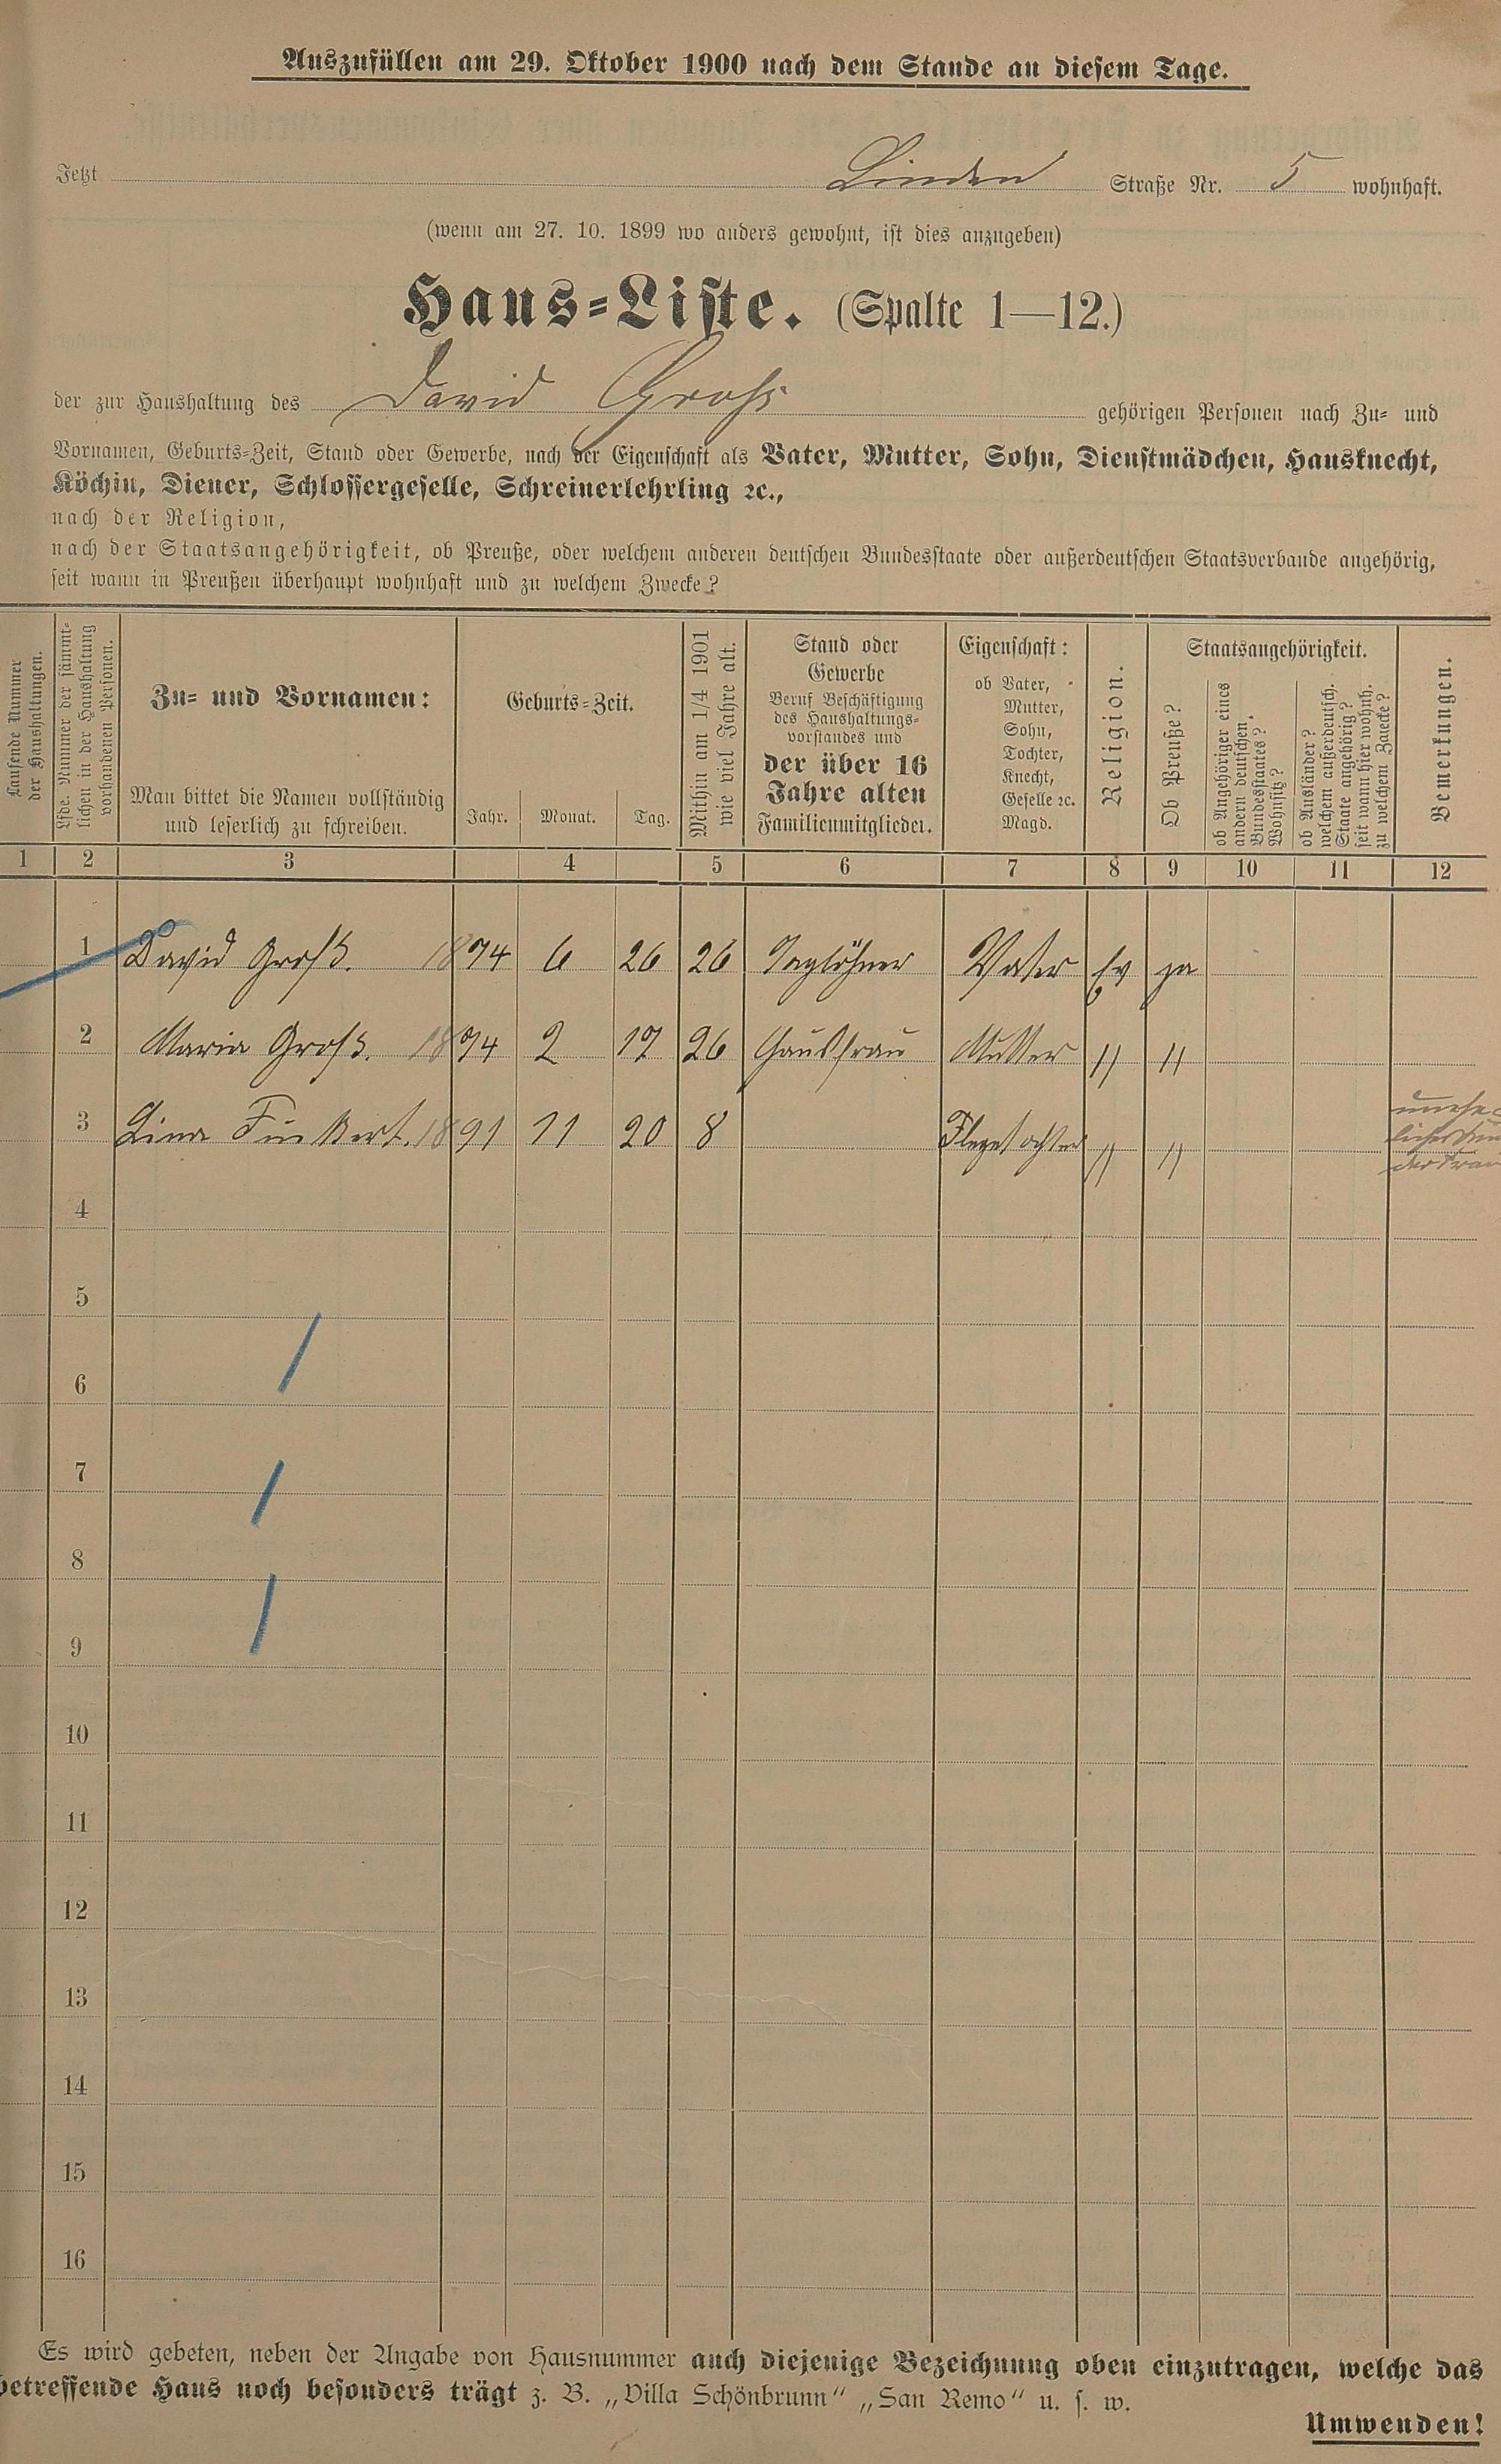 Auszufüllen am 29. Oktober 1900 nach dem Stande an diesem Tage.
Jetzt Linden Straße Nr. 5 wohnhaft.
(wenn am 27. 10. 1899 wo anders gewohnt, ist dies anzugeben)
Haus-Liste. (Spalte 1—12.)
der zur Haushaltung des David Groß gehörigen Personen nach Zu- und
Vornamen, Geburts-Zeit, Stand oder Gewerbe, nach der Eigenschaft als Vater, Mutter, Sohn, Dienstmädchen, Hausknecht,
Köchin, Diener, Schlossergeselle, Schreinerlehrling ꝛc.,
nach der Religion,
nach der Staatsangehörigkeit, ob Preuße, oder welchem anderen deutschen Bundesstaate oder außerdeutschen Staatsverbande angehörig,
seit wann in Preußen überhaupt wohnhaft und zu welchem Zwecke?
Laufende Nummer
der Haushaltungen.
Lfde. Nummer der sämmt-
lichen in der Haushaltung
vorhandenen Personen.
Zu- und Vornamen:
Man bittet die Namen vollständig
und leserlich zu schreiben.
Geburts-Zeit.
Jahr. Monat. Tag.
Mithin am 1/4 1901
wie viel Jahre alt.
Stand oder
Gewerbe
Beruf Beschäftigung
des Haushaltungs-
vorstandes und
der über 16
Jahre alten
Familienmitglieder.
Eigenschaft:
ob Vater,
Mutter,
Sohn,
Tochter,
Knecht,
Geselle ꝛc.
Magd.
Religion.
Staatsangehörigkeit.
Ob Preuße?
ob Angehöriger eines
andern deutschen
Bundesstaates?
Wohnsitz?
ob Ausländer?
welchem außerdeutsch.
Staate angehörig?
seit wann hier wohnh.
zu welchem Zwecke?
Bemerkungen.
1 2 3 4 5 6 7 8 9 10 11 12
1 David Groß. 1874 6 26 26 Taglöhner Vater Ev ja
2 Maria Groß. 1874 2 17 26 Hausfrau Mutter " "
3 Lina 1891 11 20 8 Flegetochter " "
der Frau
4
5
6
7
8
9
10
11
12
13
14
15
16
Es wird gebeten, neben der Angabe von Hausnummer auch diejenige Bezeichnung oben einzutragen, welche das
betreffende Haus noch besonders trägt z. B. „Villa Schönbrunn“ „San Remo“ u. s. w.
Umwenden!